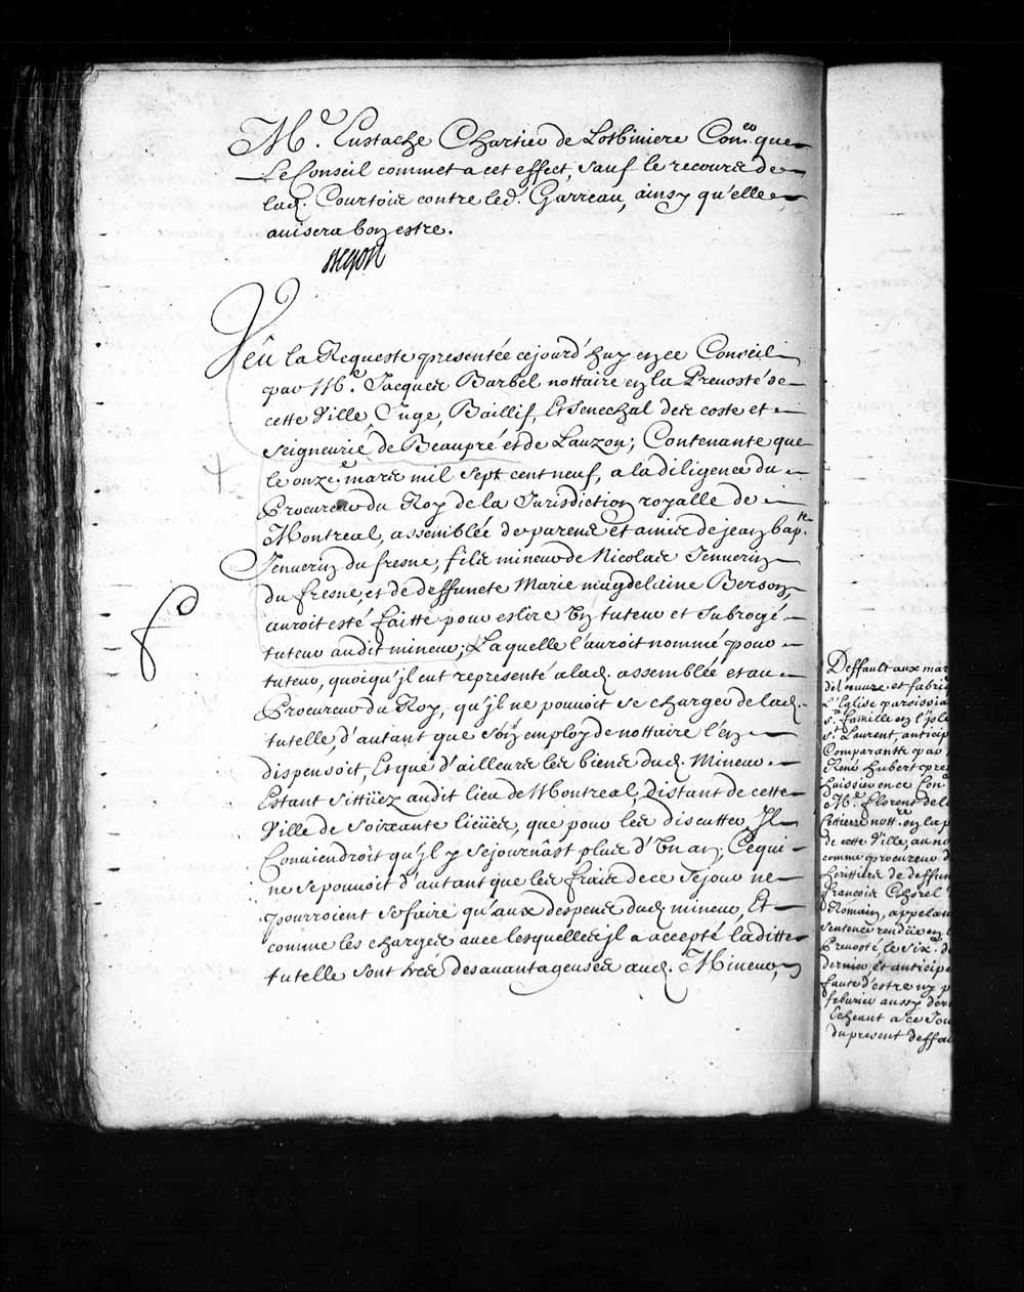 Me. Eustache Chartier de Lotbiniere Coner. que
Le Conseil commet a cet effect, sauf le recours de
lad. Courtois contre led. Garreau, ainsy qu'elle
auisera bon estre.
Begon
Veü la Requeste presentée cejourd'huy en ce Conseil
par Me. Jacques Barbel nottaire en la Preuosté de
cette Ville, Juge, Baillif, Et Senechal des coste et
seigneurie de Beaupré et de Lauzon; Contenante que
le onze.e mars mil sept cent neuf, a la diligence du
Procureur du Roy de la Jurisdiction royalle de
Montreal, assemblée de parens et amis de jean bap.te
Jenuerin du fresne, fils mineur de Nicolas Jenuerin
du fresne, et de deffuncte Marie magdelaine Berson,
auroit esté faitte pour eslire Un tuteur et subrogé
tuteur audit mineur; Laquelle l'auroit nommé pour
tuteur, quoiqu'jl eut representé a lad. assemblée et au
Procureur du Roy, qu'jl ne pouuoit se charger de lad.
tutelle, d'autant que son employ de nottaire l'en
dispensoit, Et que d'ailleurs les biens dud. Mineur
Estant sittüez audit lieu de Montreal, distant de cette
Ville de soixante lieües, que pour les discutter Jl
Conuiendroit qu'jl y sejournâst plus d'Un an; Ce qui
ne se pouuoit d'autant que les frais de ce sejour ne
pourroient se faire qu'aux despens dud. mineur, Et
comme les charges auec lesquelles jl a accepté laditte
tutelle sont tres desauantageuses aud. Mineur,
Deffault aux mar
d'oeuure et fabri
L'Eglise paroissia
s.te famille en l'jsle
s.t Laurent, anticip
Comparante par
René hubert pre
huissier en ce Con
Me. florent de l
Cetiere nott.re en la p
de cette Ville, au n
comme procureur d
herittiers de deffun
françois
Romain, appelan
sentence rendüe en l
Preuosté, le six.e d
dernier, et anticip
faute d'estre
feburier aussy der
Echeant a ce Jou
du present deffau